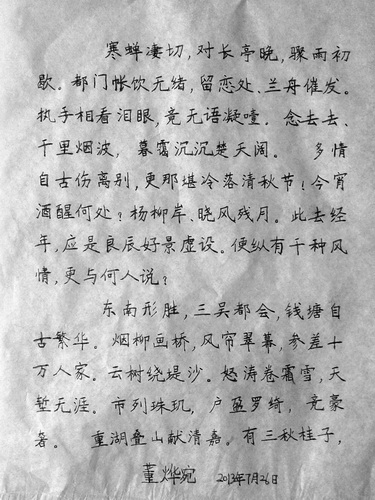 寒蝉凄切，对长亭晚，骤雨初
歇。都门帐饮无绪，留恋处、兰舟催发。
执手相看泪眼，竟无语凝噎。念去去、
千里烟波，暮霭沉沉楚天阔。 多情
自古伤离别，更那堪冷落清秋节？今宵
酒醒何处？杨柳岸、晓风残月。此去经
年，应是良辰好景虚设。便纵有千种风
情，更与何人说？
东南形胜，三吴都会，钱塘自
古繁华。烟柳画桥，风帘翠幕，参差十
万人家。云树绕堤沙。怒涛卷霜雪，天
堑无涯。市列珠玑，户盈罗绮，竞豪
奢。 重湖叠山献清嘉。有三秋桂子，
董烨宛 2013年7月26日